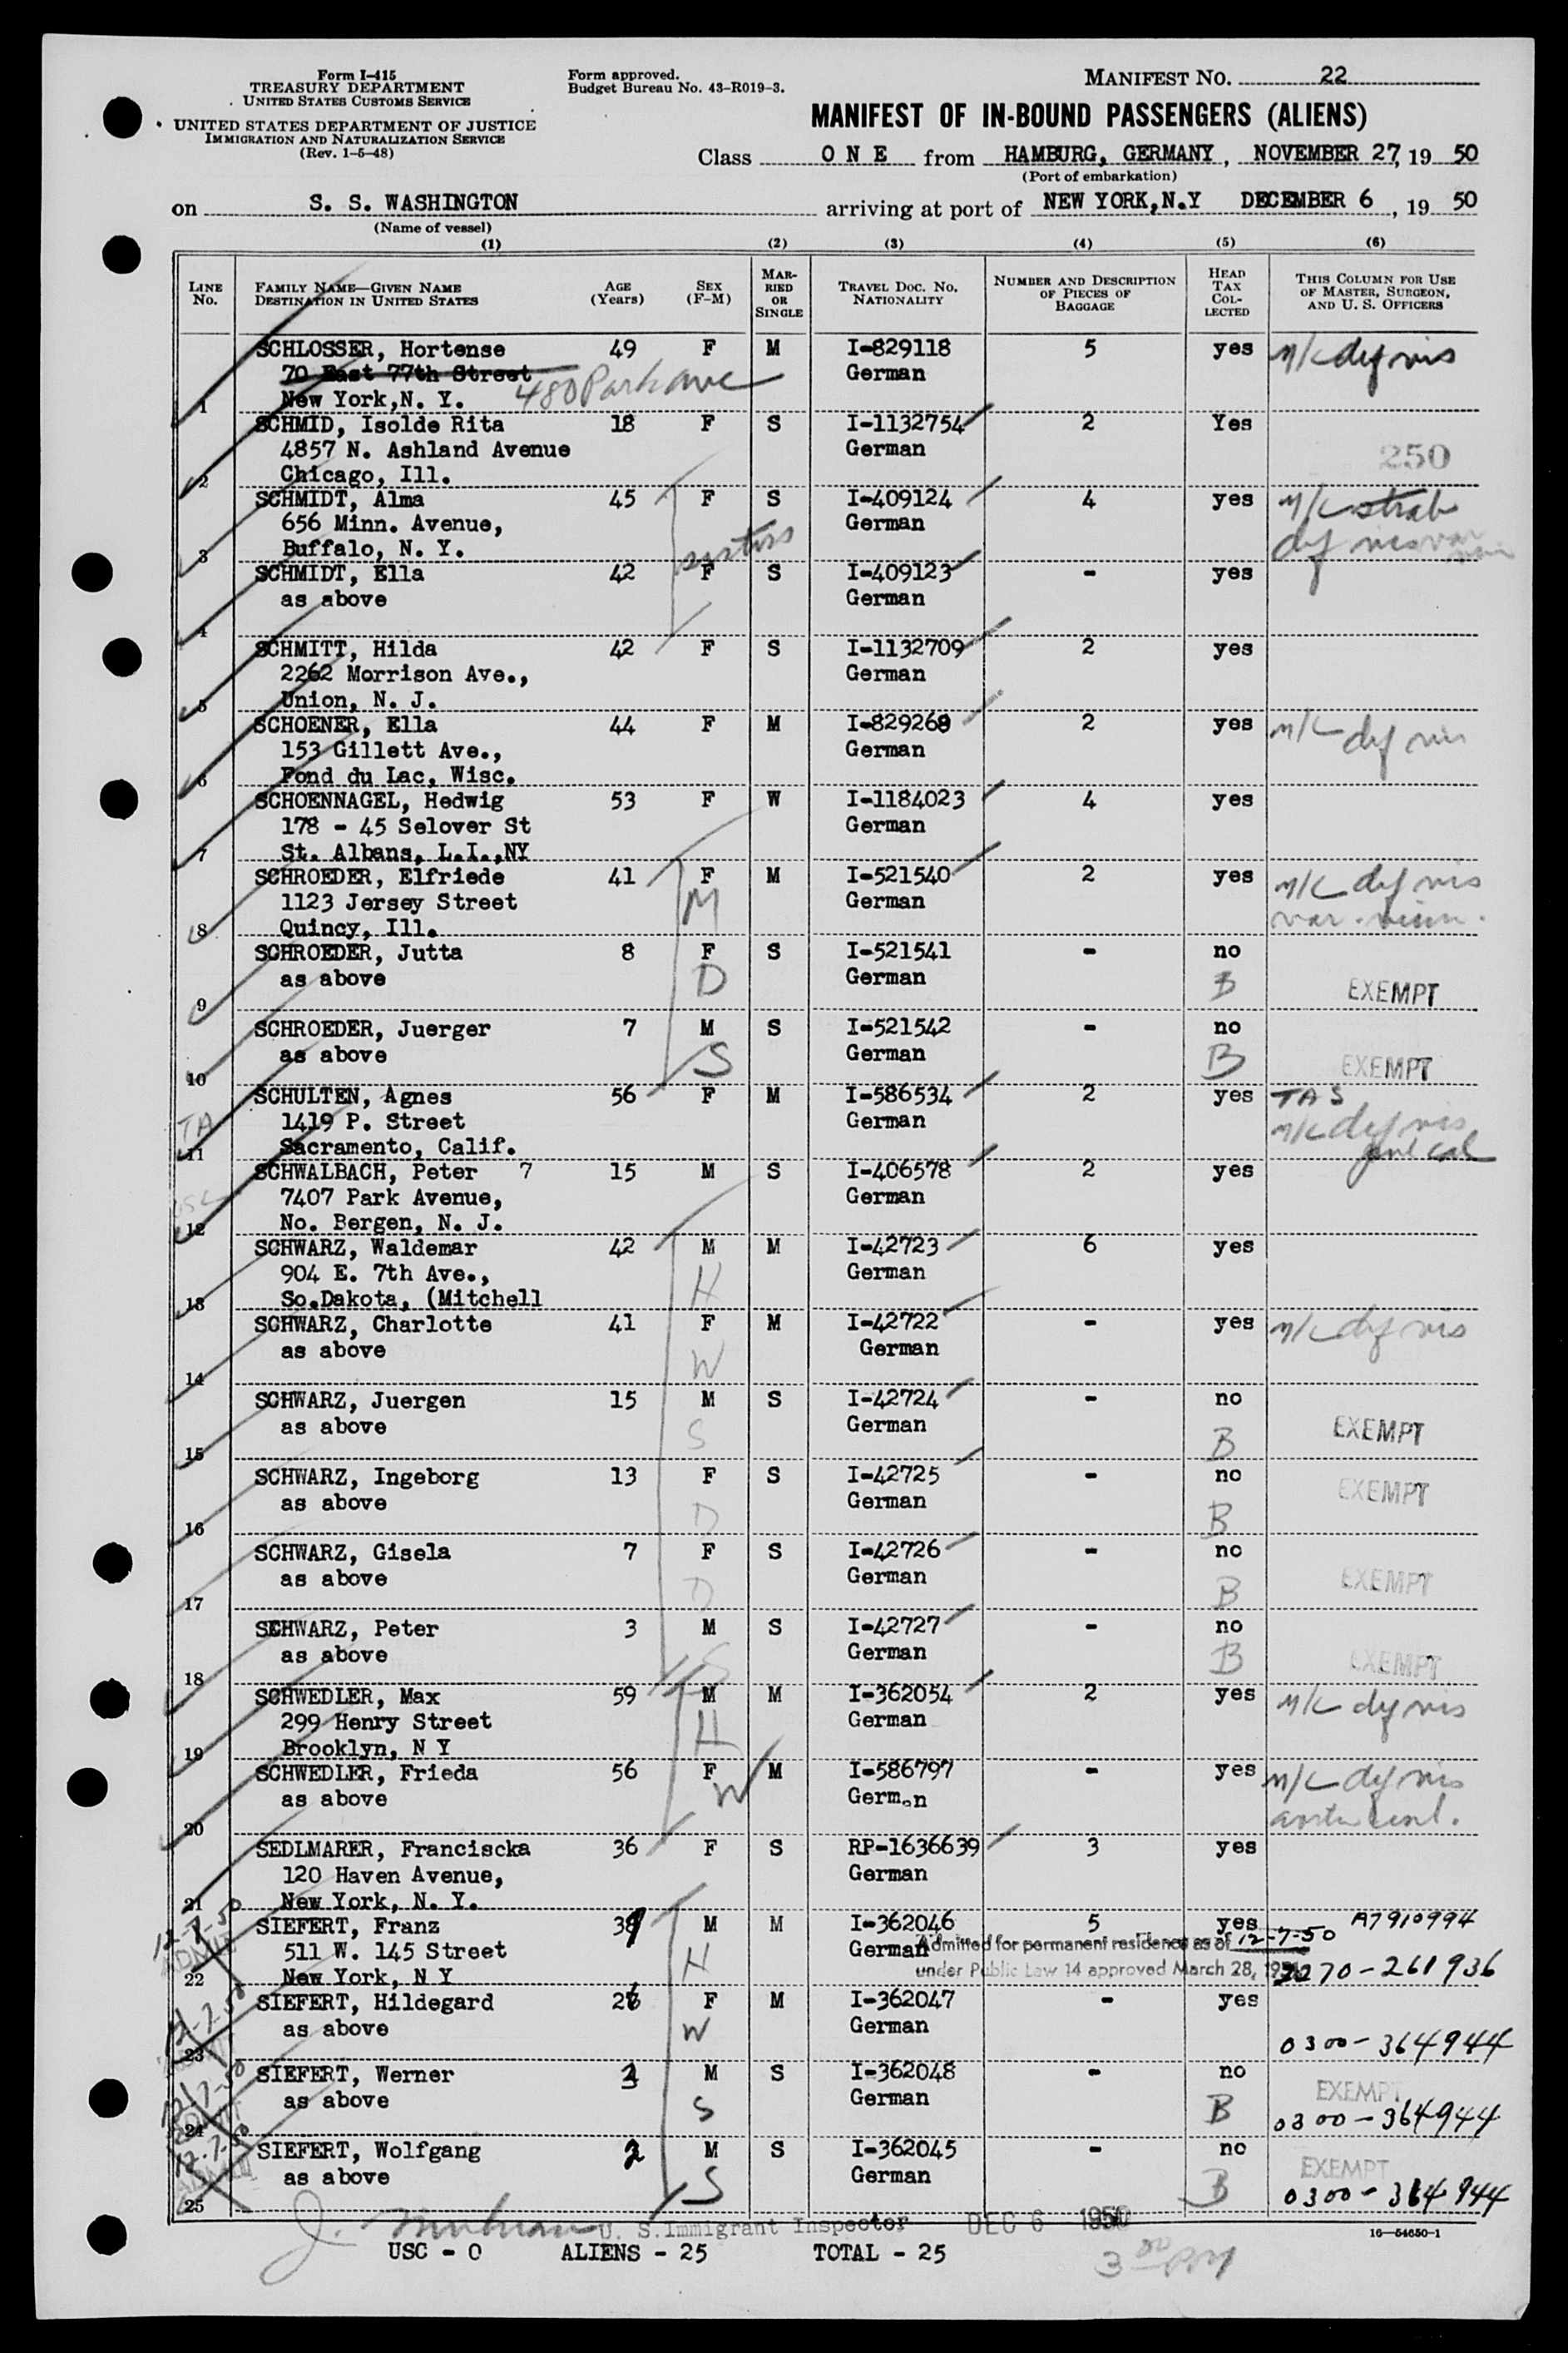 Form I-415
TREASURY DEPARTMENT
UNITED STATES CUSTOMS SERVICE
UNITED STATES DEPARTMENT OF JUSTICE
IMMIGRATION AND NATURALIZATION SERVICE
(Rev. 1-5-48)
Form approved.
Budget Bureau No. 43-R019-3.
MANIFEST NO. 22
MANIFEST OF IN-BOUND PASSENGERS (ALIENS)
Class O N E from HAMBURG, GERMANY, NOVEMBER 27, 19 50
(Port of embarkation)
on S. S. WASHINGTON arriving at port of NEW YORK,N.Y DECEMBER 6, 19 50
(Name of vessel)
(1) (2) (3) (4) (5) (6)
LINE No.
FAMILY NAME—GIVEN NAME
DESTINATION IN UNITED STATES
AGE (Years)
SEX (F-M)
MARRIED OR SINGLE
TRAVEL DOC. NO. NATIONALITY
NUMBER AND DESCRIPTION OF PIECES OF BAGGAGE
HEAD TAX COLLECTED
THIS COLUMN FOR USE OF MASTER, SURGEON, AND U. S. OFFICERS
SCHLOSSER, Hortense 49 F M I-829118 5 yes n/c def vis
70 East 77th Street German
1 New York,N. Y. 480 Park ave
SCHMID, Isolde Rita 18 F S I-1132754 2 Yes
4857 N. Ashland Avenue German 250
2 Chicago, Ill.
SCHMIDT, Alma 45 F S I-409124 4 yes n/c strab
656 Minn. Avenue, German def vis var
3 Buffalo, N. Y. sisters
SCHMIDT, Ella 42 F S I-409123 - yes
as above German
4
SCHMITT, Hilda 42 F S I-1132709 2 yes
2262 Morrison Ave., German
5 Union, N. J.
SCHOENER, Ella 44 F M I-829268 2 yes n/c def vis
153 Gillett Ave., German
6 Fond du Lac, Wisc.
SCHOENNAGEL, Hedwig 53 F W I-1184023 4 yes
178 - 45 Selover St German
7 St. Albans, L.I.,NY
SCHROEDER, Elfriede 41 F M I-521540 2 yes n/c def vis
1123 Jersey Street M German var. vein.
8 Quincy, Ill.
SCHROEDER, Jutta 8 F S I-521541 - no
as above D German B EXEMPT
9
SCHROEDER, Juerger 7 M S I-521542 - no
as above S German B EXEMPT
10
SCHULTEN, Agnes 56 F M I-586534 2 yes TAS
TA 1419 P. Street German n/c def vis
11 Sacramento, Calif.
SCHWALBACH, Peter 7 15 M S I-406578 2 yes
7407 Park Avenue, German
12 No. Bergen, N. J.
SCHWARZ, Waldemar 42 M M I-42723 6 yes
904 E. 7th Ave., H German
13 So.Dakota, (Mitchell
SCHWARZ, Charlotte 41 F M I-42722 - yes n/c def vis
as above W German
14
SCHWARZ, Juergen 15 M S I-42724 - no
as above S German B EXEMPT
15
SCHWARZ, Ingeborg 13 F S I-42725 - no
as above D German B EXEMPT
16
SCHWARZ, Gisela 7 F S I-42726 - no
as above D German B EXEMPT
17
SCHWARZ, Peter 3 M S I-42727 - no
as above S German B EXEMPT
18
SCHWEDLER, Max 59 M M I-362054 2 yes n/c def vis
299 Henry Street H German
19 Brooklyn, N Y
SCHWEDLER, Frieda 56 F M I-586797 - yes n/c def vis
as above W German
20
SEDLMARER, Franciscka 36 F S RP-1636639 3 yes
120 Haven Avenue, German
21 New York, N. Y.
12-7-50 SIEFERT, Franz 39 M M I-362046 5 yes A7910994
ADMIT 511 W. 145 Street H German Admitted for permanent residence as of 12-7-50
22 New York, N Y under Public Law 14 approved March 28, 0270-261936
12-7-50 SIEFERT, Hildegard 26 F M I-362047 - yes
as above W German
23 0300-364944
12-7-50 SIEFERT, Werner 3 M S I-362048 - no EXEMPT
as above S German B 0300-364944
24
12-7-50 SIEFERT, Wolfgang 2 M S I-362045 - no EXEMPT
ADMIT as above S German B 0300-364944
25
J. U. S. Immigrant Inspector DEC 6 1950
16—54650-1
USC - 0 ALIENS - 25 TOTAL - 25 3 00 PM